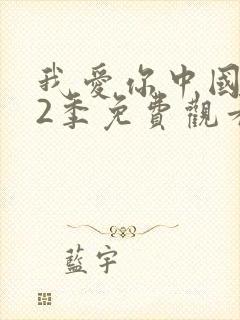 我愛你中國
2季免費觀看
藍宇